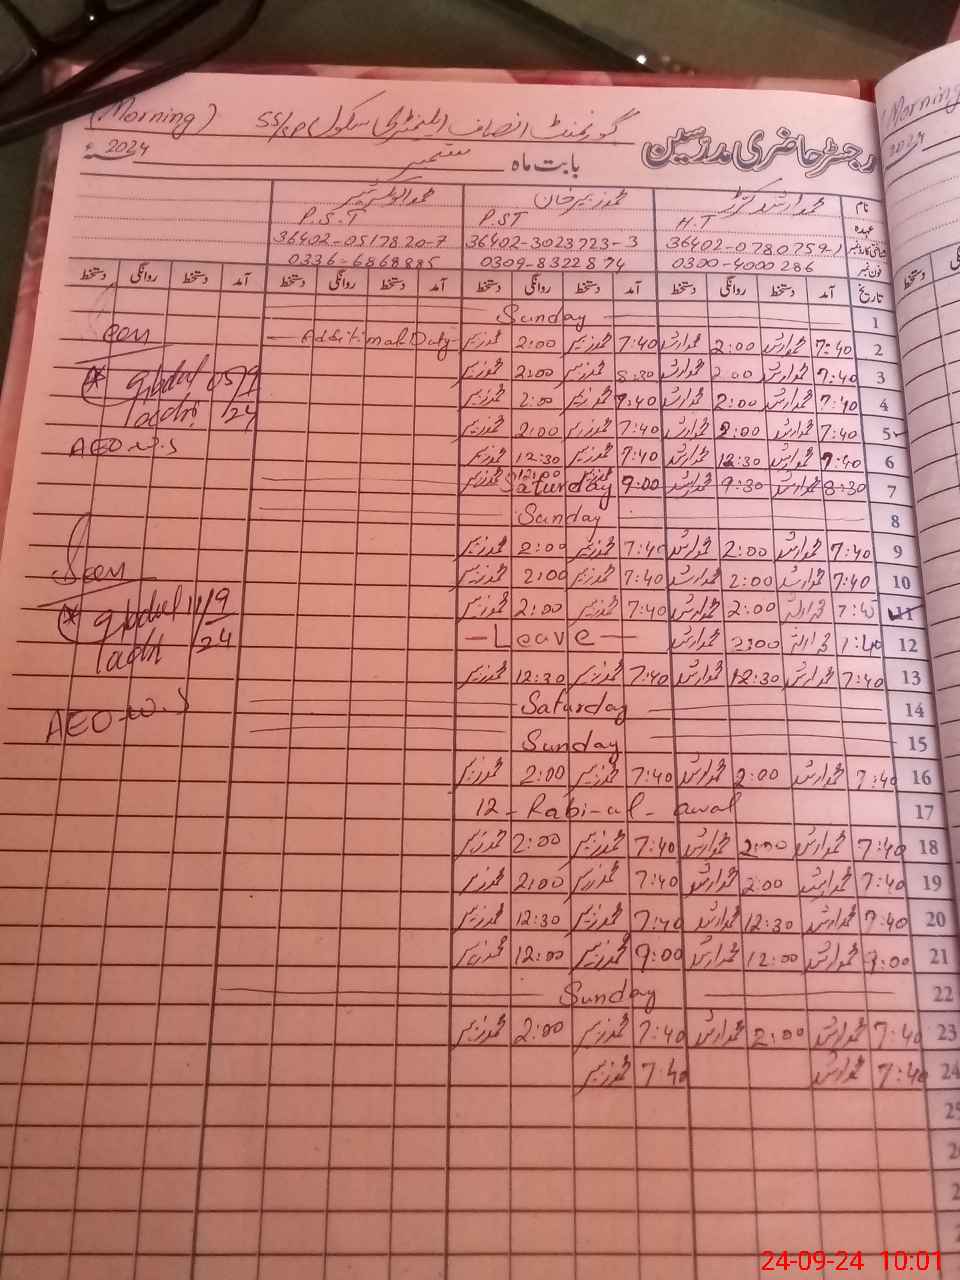 (Morning) گورنمنٹ انصاف ایلیمنٹری سکول SS/SP
رجسٹر حاضری مدرسین بابت ماہ ستمبر 2024ء
نام محمد ارشد محمد زبیر خان محمد ابوبکر
عہدہ H.T P.ST P.S.T
شناختی کارڈ نمبر 36402-0780759-1 36402-3023723-3 36402-0517820-7
فون نمبر 0300-4000286 0309-8322874 0336-6868885
تاریخ آمد دستخط روانگی دستخط آمد دستخط روانگی دستخط آمد دستخط روانگی دستخط آمد دستخط روانگی دستخط
1 Sunday
2 7:40 محمد ارشد 2:00 محمد ارشد 7:40 محمد زبیر 2:00 محمد زبیر Additional Duty
3 7:40 محمد ارشد 2:00 محمد ارشد 8:30 محمد زبیر 2:00 محمد زبیر
4 7:40 محمد ارشد 2:00 محمد ارشد 7:40 محمد زبیر 2:00 محمد زبیر
5 7:40 محمد ارشد 2:00 محمد ارشد 7:40 محمد زبیر 2:00 محمد زبیر
6 7:40 محمد ارشد 12:30 محمد ارشد 7:40 محمد زبیر 12:30 محمد زبیر
7 8:30 محمد ارشد 9:30 محمد ارشد 9:00 محمد زبیر 12:00 محمد زبیر Saturday
8 Sunday
9 7:40 محمد ارشد 2:00 محمد ارشد 7:40 محمد زبیر 2:00 محمد زبیر
10 7:40 محمد ارشد 2:00 محمد ارشد 7:40 محمد زبیر 2:00 محمد زبیر
11 محمد ارشد 2:00 محمد ارشد 7:40 محمد زبیر 2:00 محمد زبیر
12 محمد ارشد 2:00 محمد ارشد -Leave-
13 7:40 محمد ارشد 12:30 محمد ارشد 7:40 محمد زبیر 12:30 محمد زبیر
14 Saturday
15 Sunday
16 7:40 محمد ارشد 2:00 محمد ارشد 7:40 محمد زبیر 2:00 محمد زبیر
17 12-Rabi-ul-awal
18 7:40 محمد ارشد 2:00 محمد ارشد 7:40 محمد زبیر 2:00 محمد زبیر
19 7:40 محمد ارشد 2:00 محمد ارشد 7:40 محمد زبیر 2:00 محمد زبیر
20 7:40 محمد ارشد 12:30 محمد ارشد 7:40 محمد زبیر 12:30 محمد زبیر
21 9:00 محمد ارشد 12:00 محمد ارشد 9:00 محمد زبیر 12:00 محمد زبیر
22 Sunday
23 7:40 محمد ارشد 2:00 محمد ارشد 7:40 محمد زبیر 2:00 محمد زبیر
24 7:40 محمد ارشد 7:40 محمد زبیر
25
Seen
05/9
/24
AEO-W.S
Seen
11/9
/24
AEO-W.S
(Morning
2024
دستخط
24-09-24 10:01